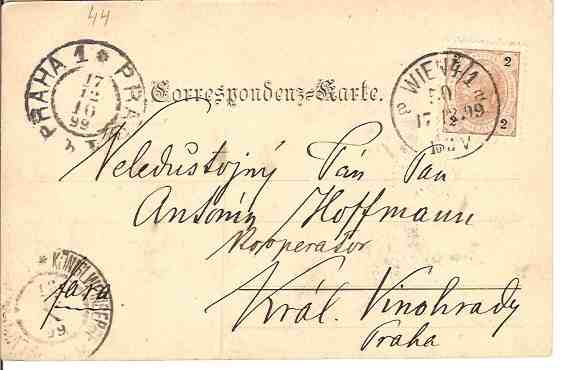 44
PRAHA 1 * PRAHA 1
17
12
10
99
Correspondenz-Karte.
WIEN 4/1
50
17.12.99
2
2
2
Veledůstojný Pán Pan
Antonín Hoffmann
Kooperator
fara
Král. Vinohrady
Praha